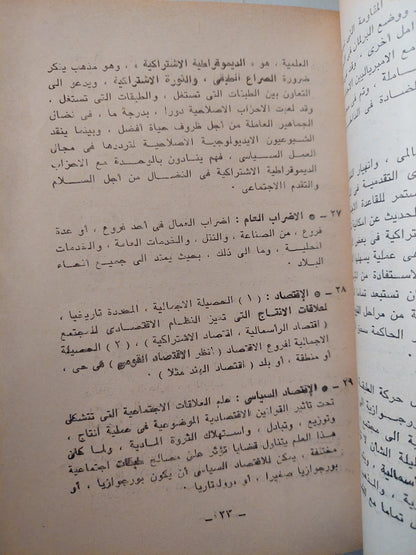 العلمية ، هو « الديموقراطية الاشتراكية » ، وهو مذهب ينكر
ضرورة الصراع الطبقى ، والثورة الاشتراكية ، ويدعو الى
التعاون بين الطبقات التى تستغل ، والطبقات التى تستغل .
وقد لعبت الاحزاب الاصلاحية دورا ، بدرجة ما ، فى نضال
الجماهير العاملة من اجل ظروف حياة افضل . وبينما ينقد
الشيوعيون الايديولوجية الاصلاحية لترددها فى مجال
العمل السياسى ، فهم ينادون بالوحدة مع الاحزاب
الديموقراطية الاشتراكية فى النضال من اجل السلام
والتقدم الاجتماعى .
٢٧ — * الاضراب العام : اضراب العمال فى احد فروع ، او عدة
فروع ، من الصناعة ، والنقل ، والخدمات العامة ، والخدمات
المحلية ، وما الى ذلك . بحيث يمتد الى جميع انحاء
البلاد .
٢٨ — * الاقتصاد : ( ١ ) الحصيلة الاجمالية ، المحددة تاريخيا ،
لعلاقات الانتاج التى تميز النظام الاقتصادى للمجتمع
( اقتصاد الراسمالية ، اقتصاد الاشتراكية ) ، ( ٢ ) الحصيلة
الاجمالية لفروع الاقتصاد ( انظر الاقتصاد القومى ) فى حى ،
او منطقة ، او بلد ( اقتصاد الهند مثلا ) .
٢٩ — * الاقتصاد السياسى : علم العلاقات الاجتماعية التى تتشكل
تحت تأثير القوانين الاقتصادية الموضوعية فى عملية انتاج ،
وتوزيع ، وتبادل ، واستهلاك الثروة المادية ، ولما كان
هذا العلم يتناول قضايا تؤثر على مصالح طبقات اجتماعية
مختلفة ، يمكن للاقتصاد السياسى أن يكون بورجوازيا ، أو
بورجوازيا صغيرا ، او بروليتاريا .
— ٢٣ —